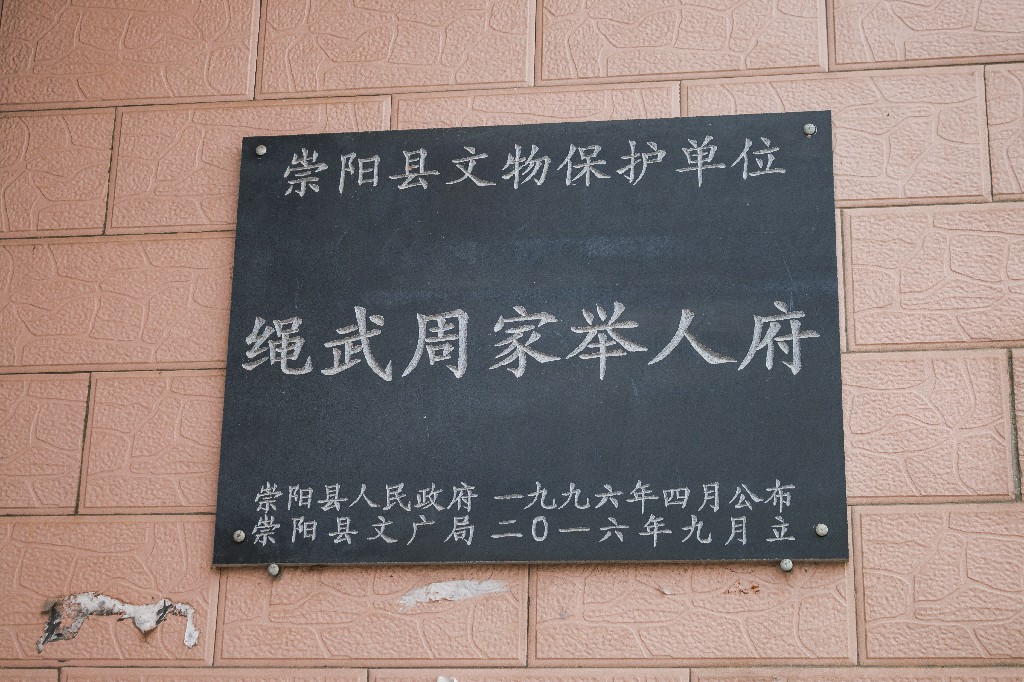 崇阳县文物保护单位
绳武周家举人府
崇阳县人民政府 一九九六年四月公布
崇阳县文广局 二0一六年九月立